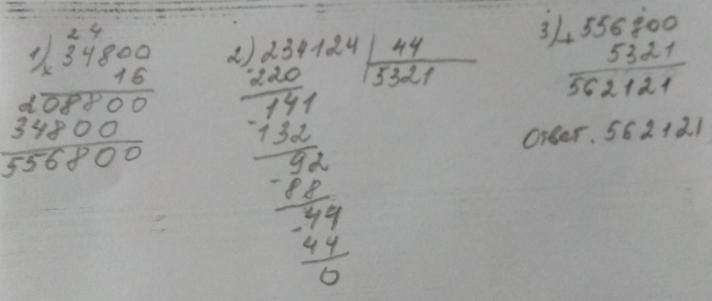 2 4
1) × 34800
16
208800
34800
556800
2) 234124 | 44
- 220 | 5321
141
- 132
92
- 88
44
- 44
0
3) + 556800
5321
562121
Ответ. 562121